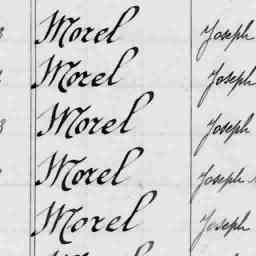 Morel Joseph
Morel Joseph
3 Morel Joseph
Morel Joseph
Morel Joseph